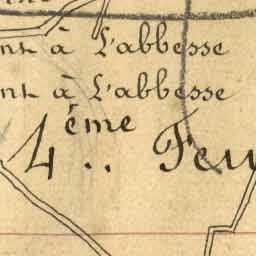 nt à L'abbesse
nt à L'abbesse
4.ème Feu